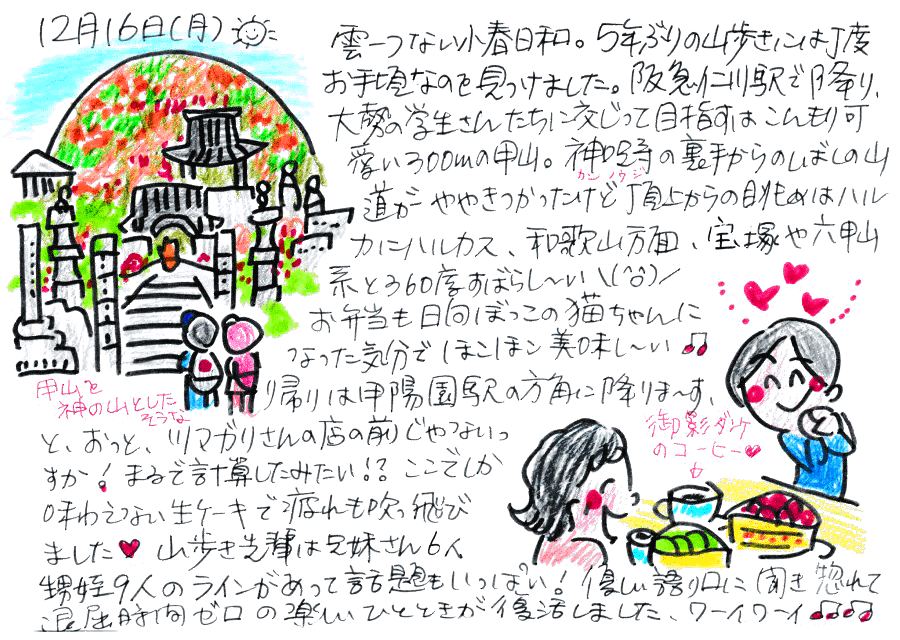 12月16日(月)
雲一つない小春日和。5年ぶりの山歩きには丁度
お手頃なのを見つけました。阪急仁川駅で降り、
大勢の学生さんたちに交じって目指すはこんもり可
愛い300mの甲山。神呪寺の裏手からのしばしの山
カンノウジ
道がややきつかったけど頂上からの眺めはハル
カにハルカス、和歌山方面、宝塚や六甲山
系と360度すばらし〜い\(^o^)/
お弁当も日向ぼっこの猫ちゃんに
なった気分でほこほこ美味し〜い♫
甲山を
神の山とした
そうな
り帰りは甲陽園駅の方角に降りま〜す、
御影ダンケ
のコーヒー♥
と、おっと、ツマガリさんの店の前じゃないっ
すか!まるで計算したみたい!?ここでしか
味わえない生ケーキで疲れも吹っ飛び
ました♥ 山歩き先輩は兄妹さん6人
甥姪9人のラインがあって話題もいっぱい!優しい語り口に聞き惚れて
退屈時間ゼロの楽しいひとときが復活しました、ワーイワーイ♫♫